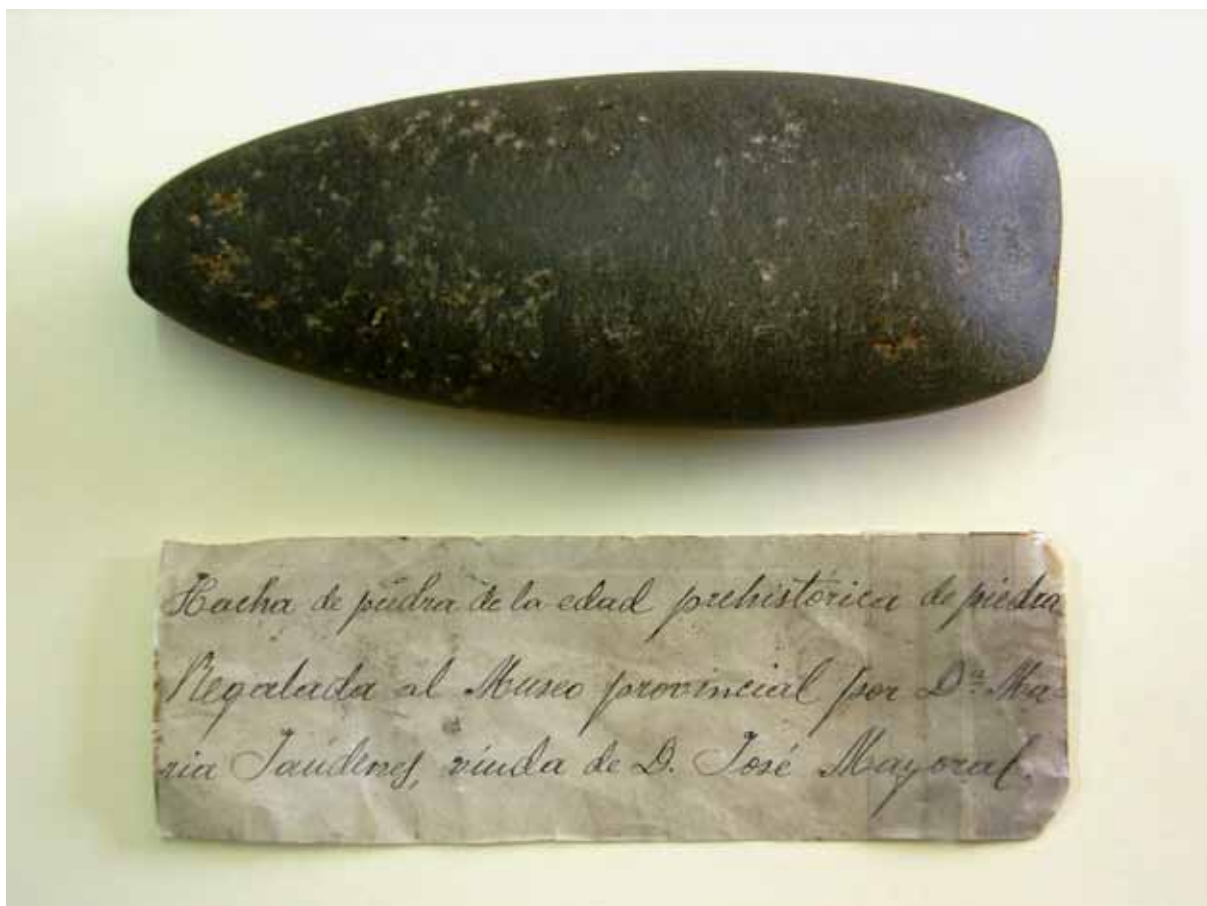 Hacha de piedra de la edad prehistórica de piedra
Regalada al Museo provincial por Dª Ma-
ria Jaúdenes, viuda de D. José Mayoral.